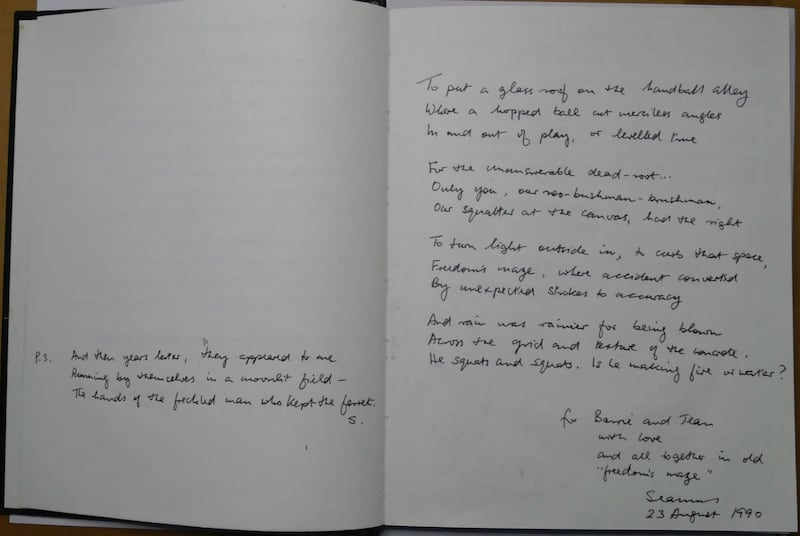 P.S. And then years later, they appeared to me
Running by themselves in a moonlit field –
The hands of the freckled man who kept the ferret.
S.
To put a glass roof on the handball alley
Where a hopped ball cut merciless angles
In and out of play, or levelled true
For the unanswerable dead-root...
Only you, our neo-bushman-brushman,
Our squatter at the canvas, had the right
To turn light outside in, to curb that space,
Freedom's maze, where accident converted
By unexpected strokes to accuracy
And rain was rainier for being blown
Across the grid and texture of the concrete.
He squats and squats. Is he making fire or water?
for Barrie and Jean
with love
and all together in old
"freedom's maze"
Seamus
23 August 1990